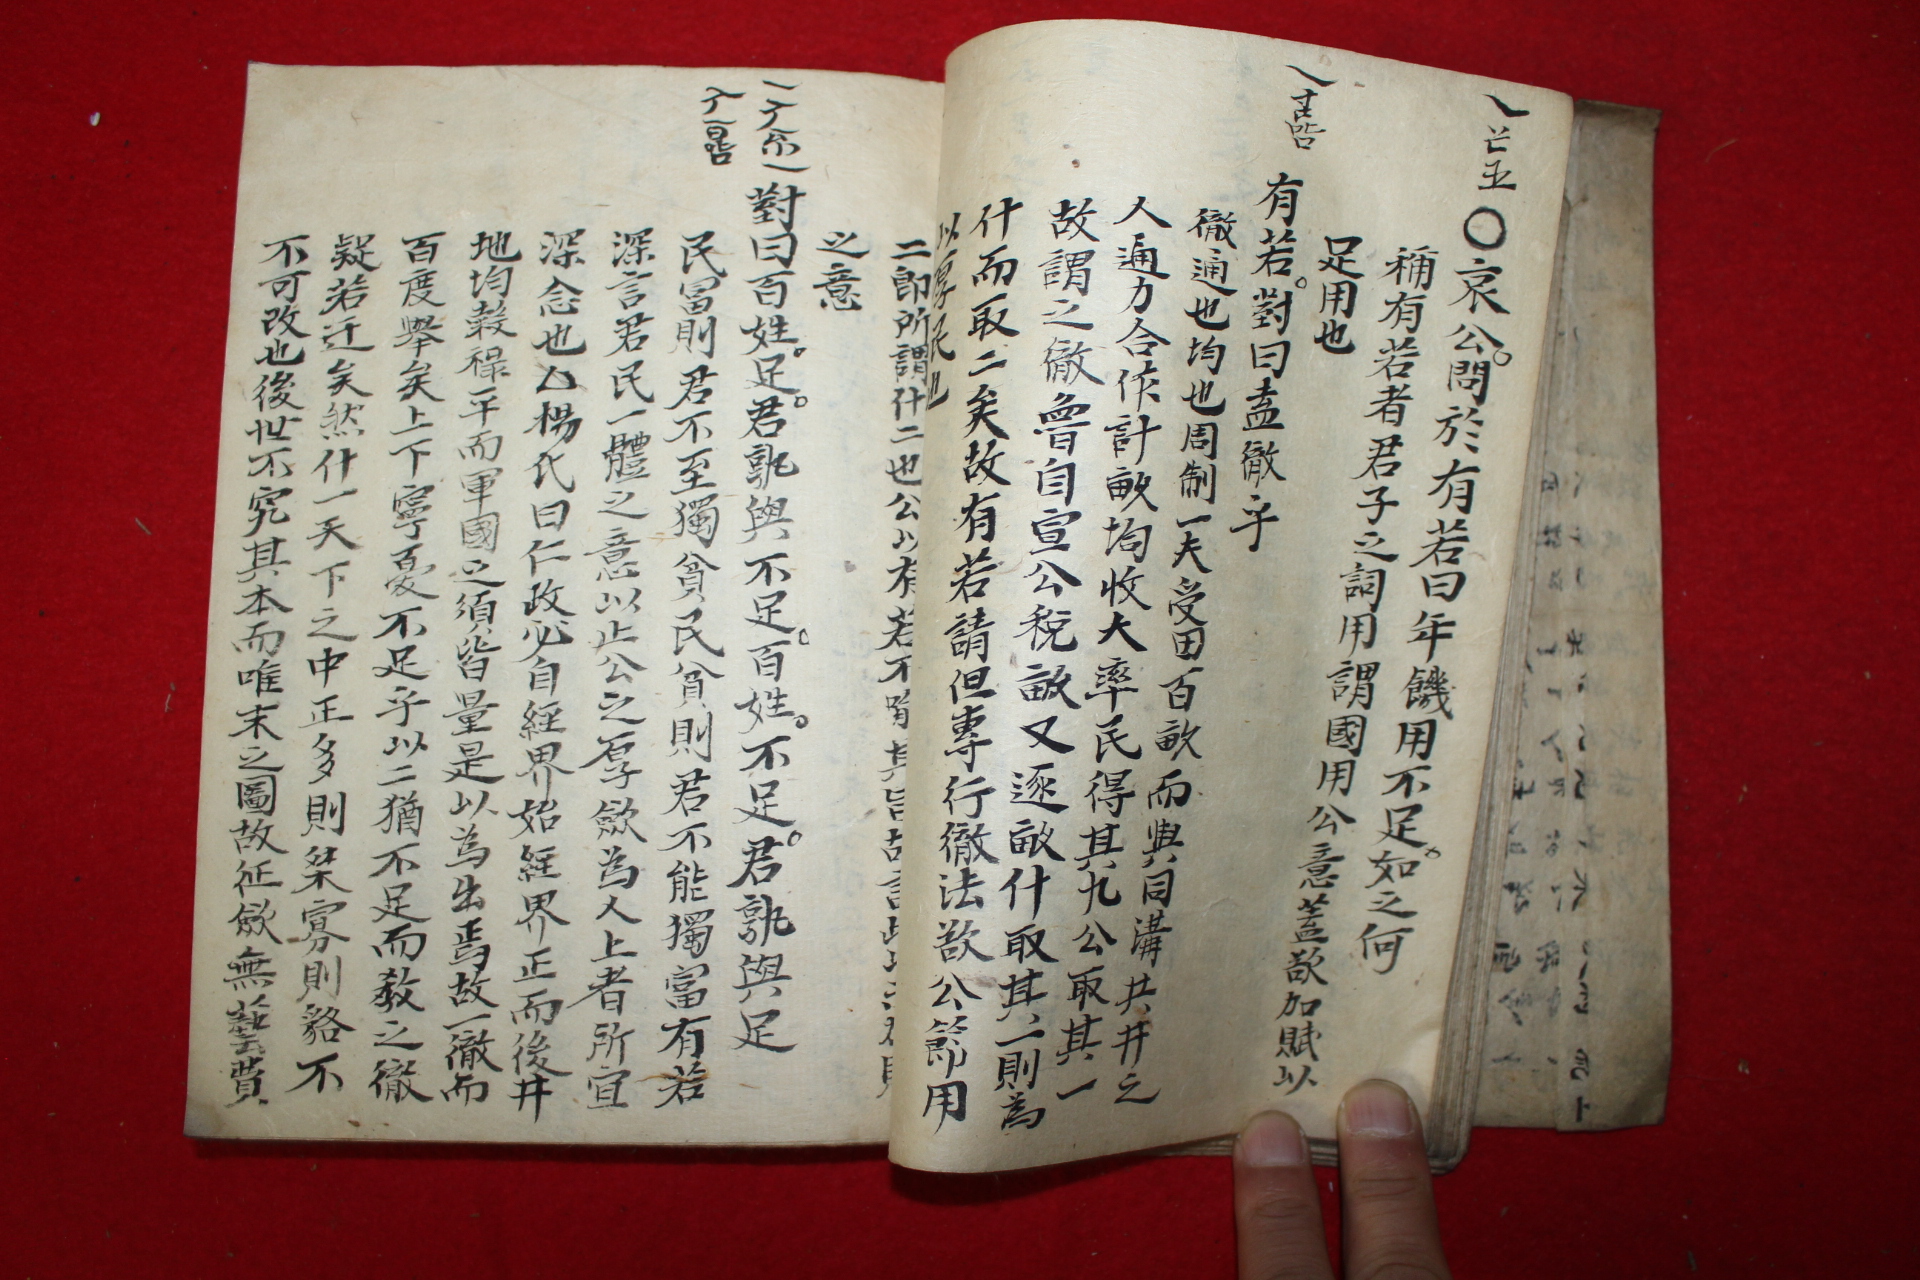 ○哀公問於有若曰年饑用不足如之何
稱有若者君子之詞用謂國用公意蓋欲加賦以
足用也
有若對曰盍徹乎
徹通也均也周制一夫受田百畝而與同溝共井之
人通力合作計畝均收大率民得其九公取其一
故謂之徹魯自宣公稅畝又逐畝什取其一則為
什而取二矣故有若請但專行徹法欲公節用
以厚民也
二即所謂什二也公以有若不喻其旨故言此以示
之意
對曰百姓足君孰與不足百姓不足君孰與足
民富則君不至獨貧民貧則君不能獨富有若
深言君民一體之意以止公之厚歛為人上者所宜
深念也乙楊氏曰仁政必自經界始經界正而後井
地均穀祿平而軍國之須皆量是以為出焉故一徹而
百度舉矣上下寧憂不足乎以二猶不足而教之徹
疑若迂矣然什一天下之中正多則桀寡則貉不
不可改也後世不究其本而唯末之圖故征歛無藝費